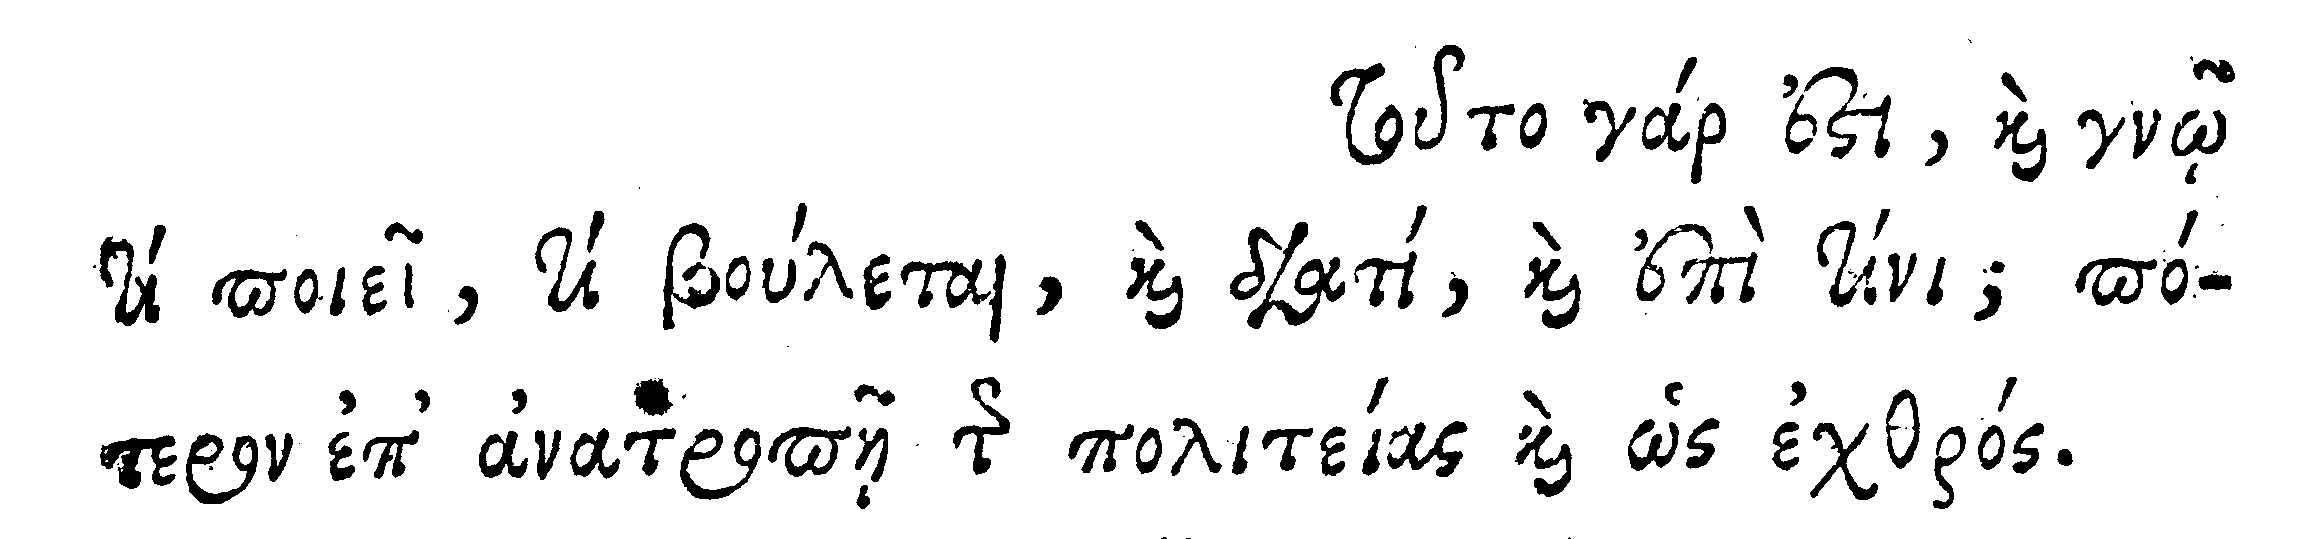 Τοῦτο γάρ ἐστι, καὶ γνῷ
τί ποιεῖ, τί βούλεται, καὶ διατί, καὶ ἐπὶ τίνι; πό-
τερον ἐπ᾽ ἀνατροπῇ τῆς πολιτείας καὶ ὡς ἐχθρός.